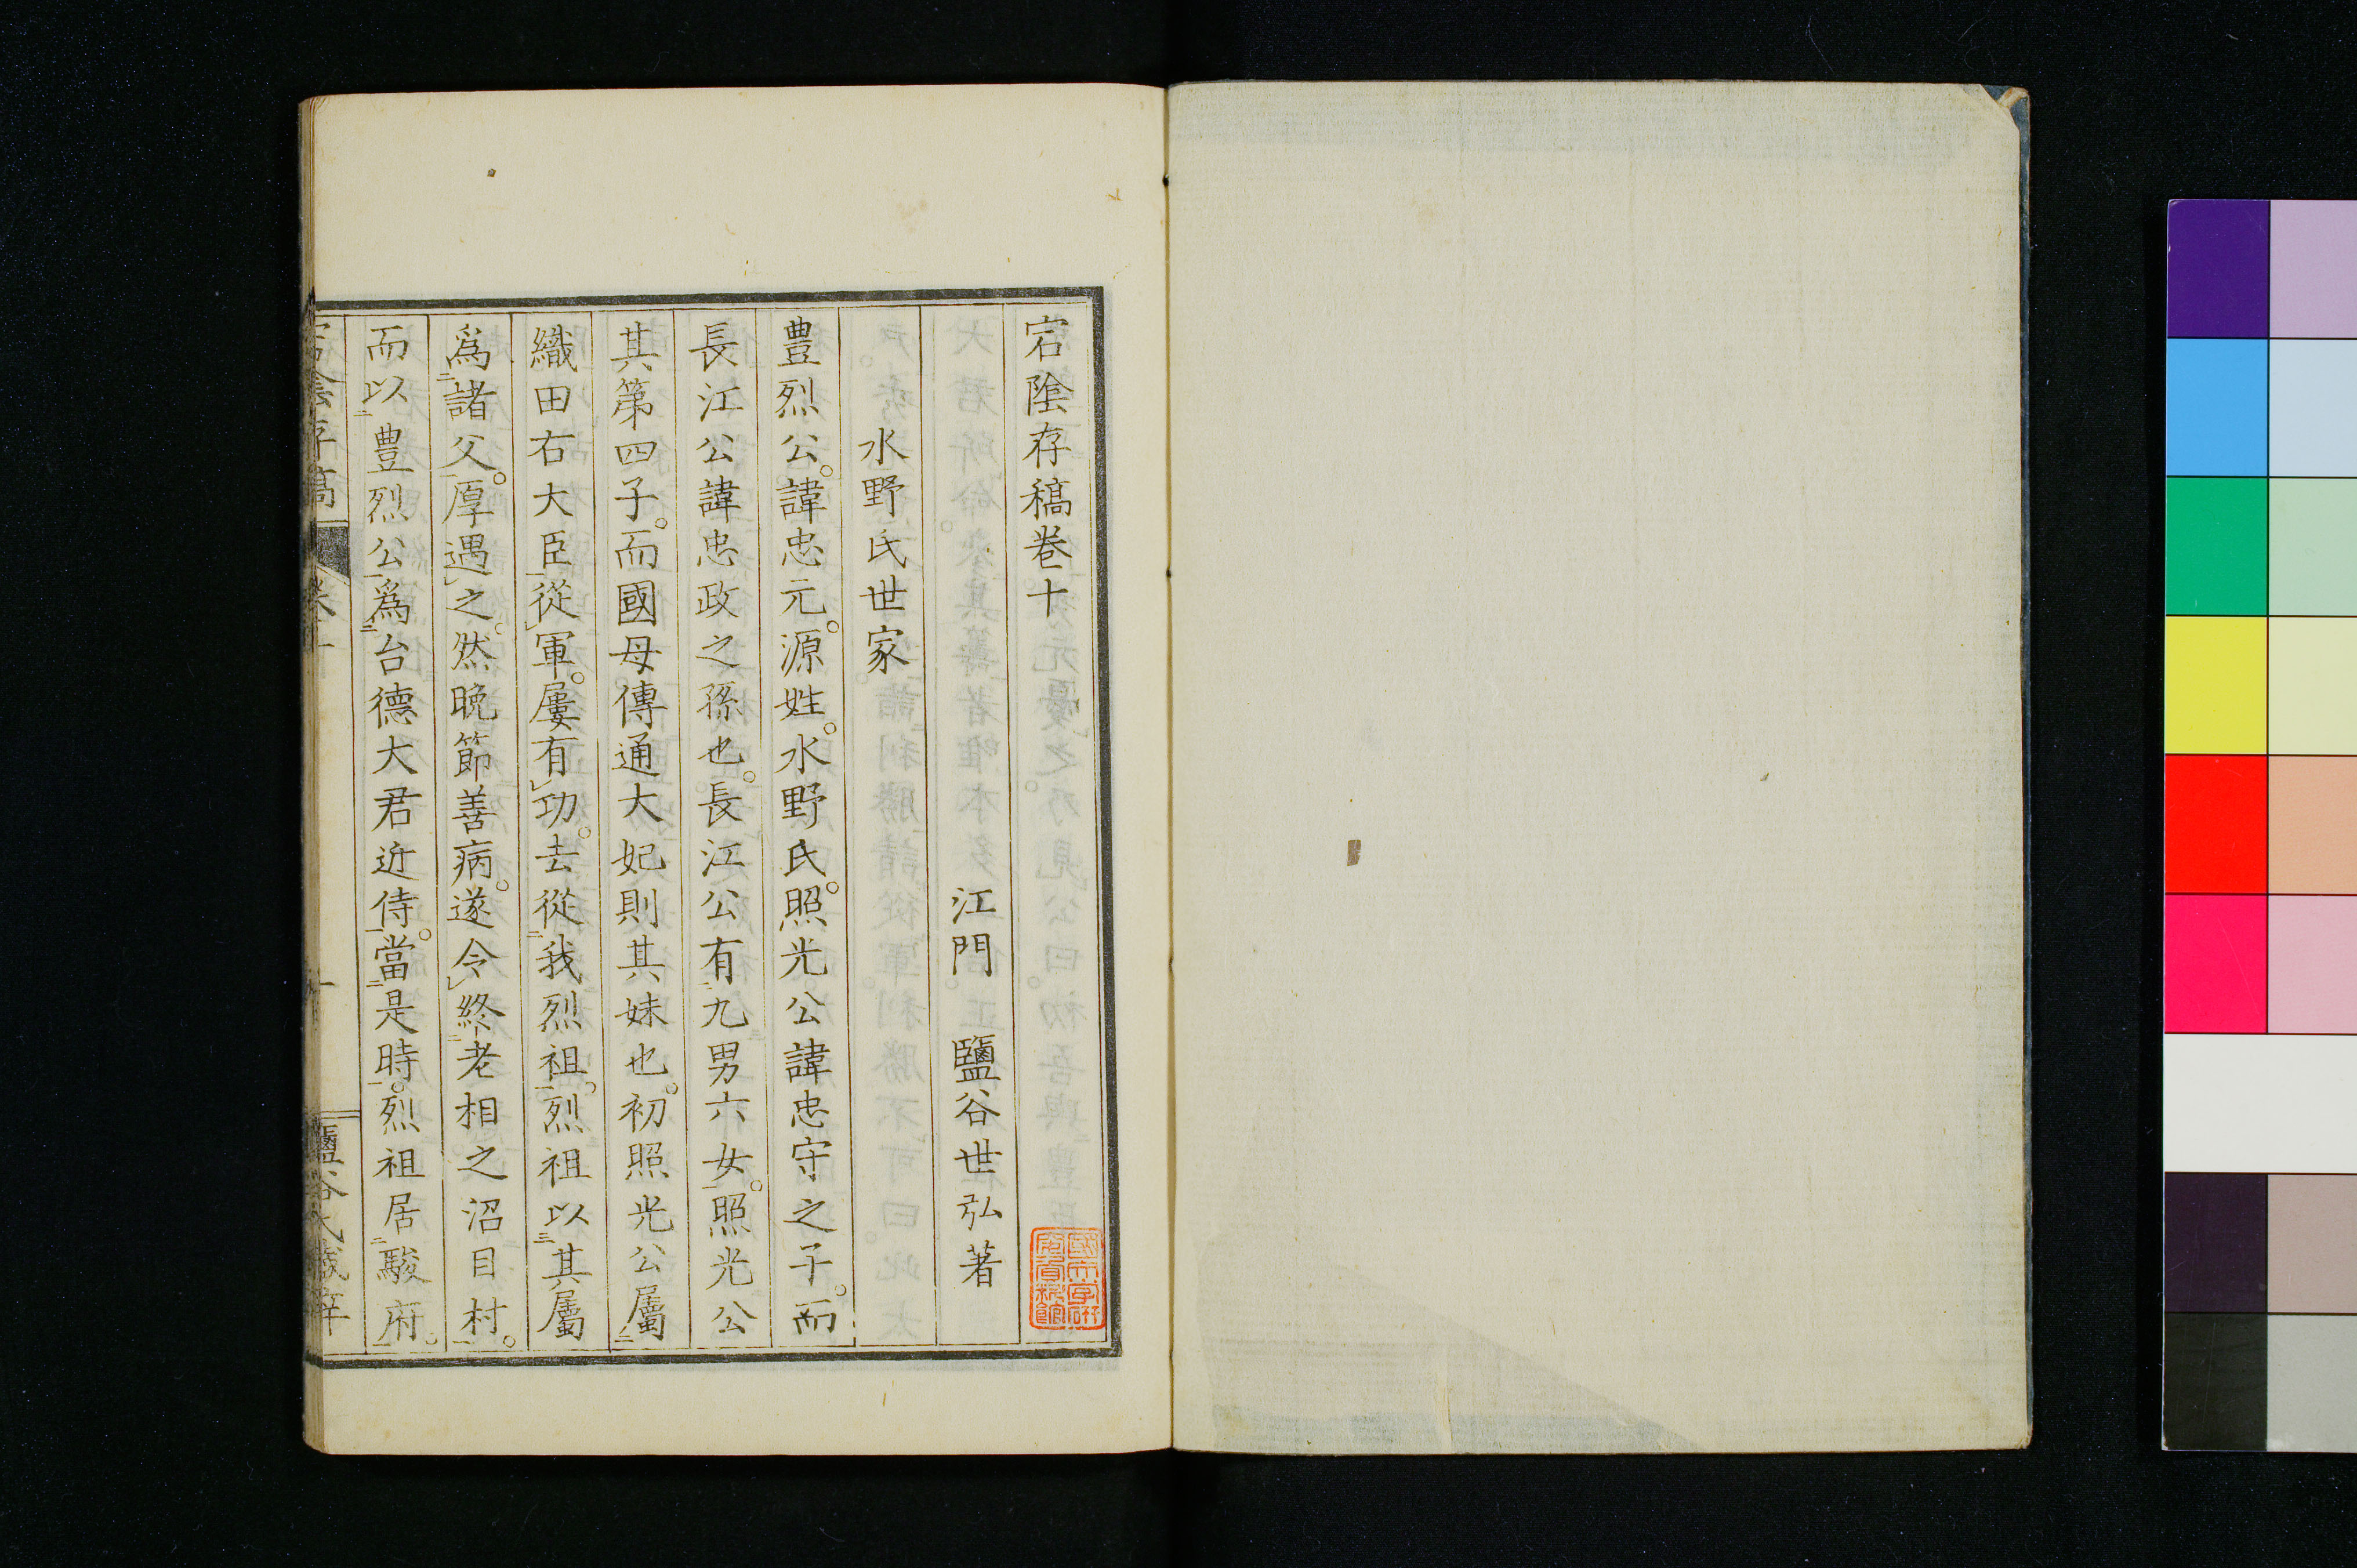 宕陰存稿卷十
江門　鹽谷世弘著
水野氏世家
豊烈公。諱忠元。源姓。水野氏。照光公諱忠守之子。而
長江公諱忠政之孫也。長江公有二九男六女一。照光公
其第四子。而國母傳通大妃則其妹也。初照光公屬二
織田右大臣一從レ軍。屢有レ功。去從二我烈祖一。烈祖以三其屬
爲二諸父一。厚遇レ之。然晩節善病。遂令レ終二老相之沼目村一。
而以二豊烈公一爲二台德大君近侍一。當二是時一。烈祖居二駿府一。
宕陰存稿　卷十　一　鹽谷氏藏梓
國文學研究資料館